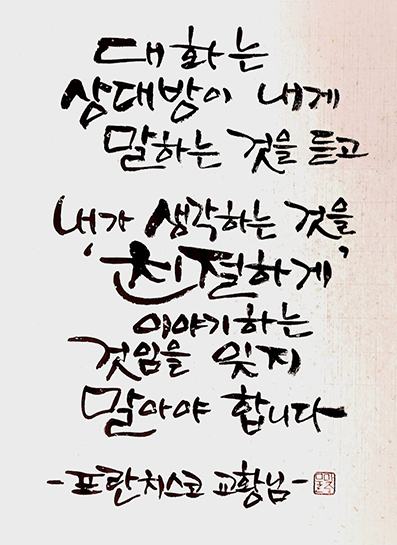 대화는
상대방이 내게
말하는 것을 듣고
내가 생각하는 것을
'친절하게'
이야기하는
것임을 잊지
말아야 합니다
-프란치스코 교황님-